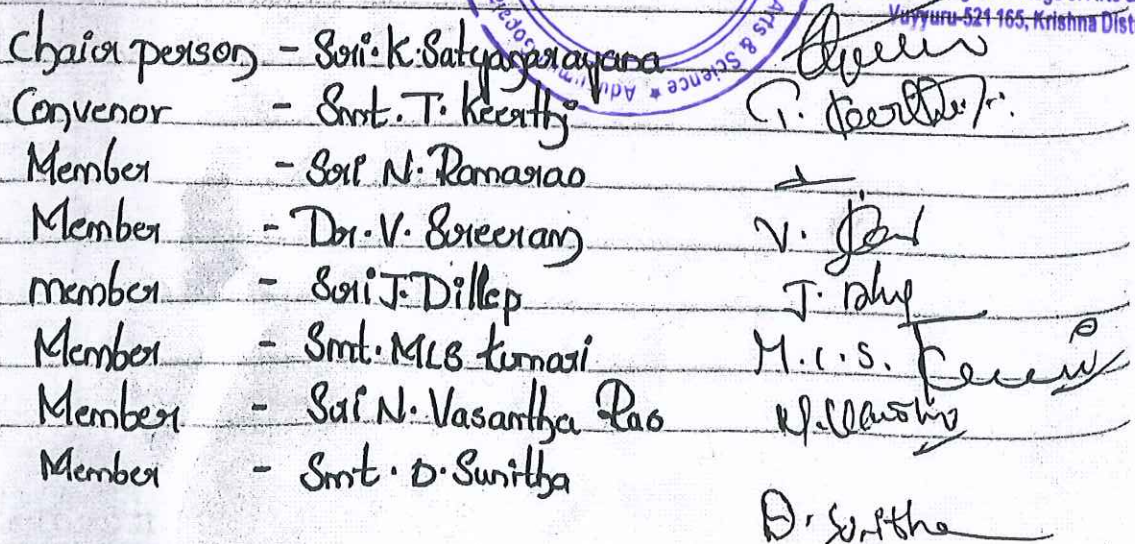 Vuyyuru-521 165, Krishna Dist
Arts & Science ★
Chair person - Sri. K. Satyanarayana
Convenor - Smt. T. Keerthi T. Keerthi
Member - Sri N. Ramarao
Member - Dr. V. Sreeram V.
member - Sri J. Dillep J. Dilip
Member - Smt. MLS kumari M.L.S.
Member - Sri N. Vasantha Rao
Member - Smt. D. Sunitha
D. Sunitha